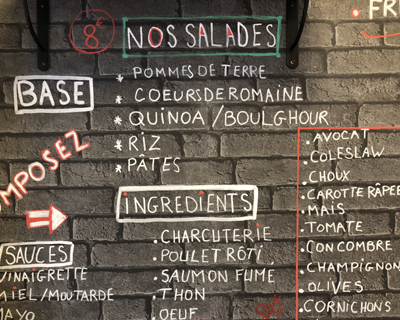 8€
NOS SALADES
BASE
* POMMES DE TERRE
* COEURS DE ROMAINE
* QUINOA / BOULGHOUR
* RIZ
* PÂTES
MPOSEZ
INGREDIENTS
. CHARCUTERIE
. POULET RÔTI
. SAUMON FUME
. THON
. OEUF
SAUCES
VINAIGRETTE
MIEL/MOUTARDE
MAYO
. FR
. AVOCAT
. COLESLAW
. CHOUX
. CAROTTE RÂPEE
. MAIS
. TOMATE
. CONCOMBRE
. CHAMPIGNON
. OLIVES
. CORNICHONS